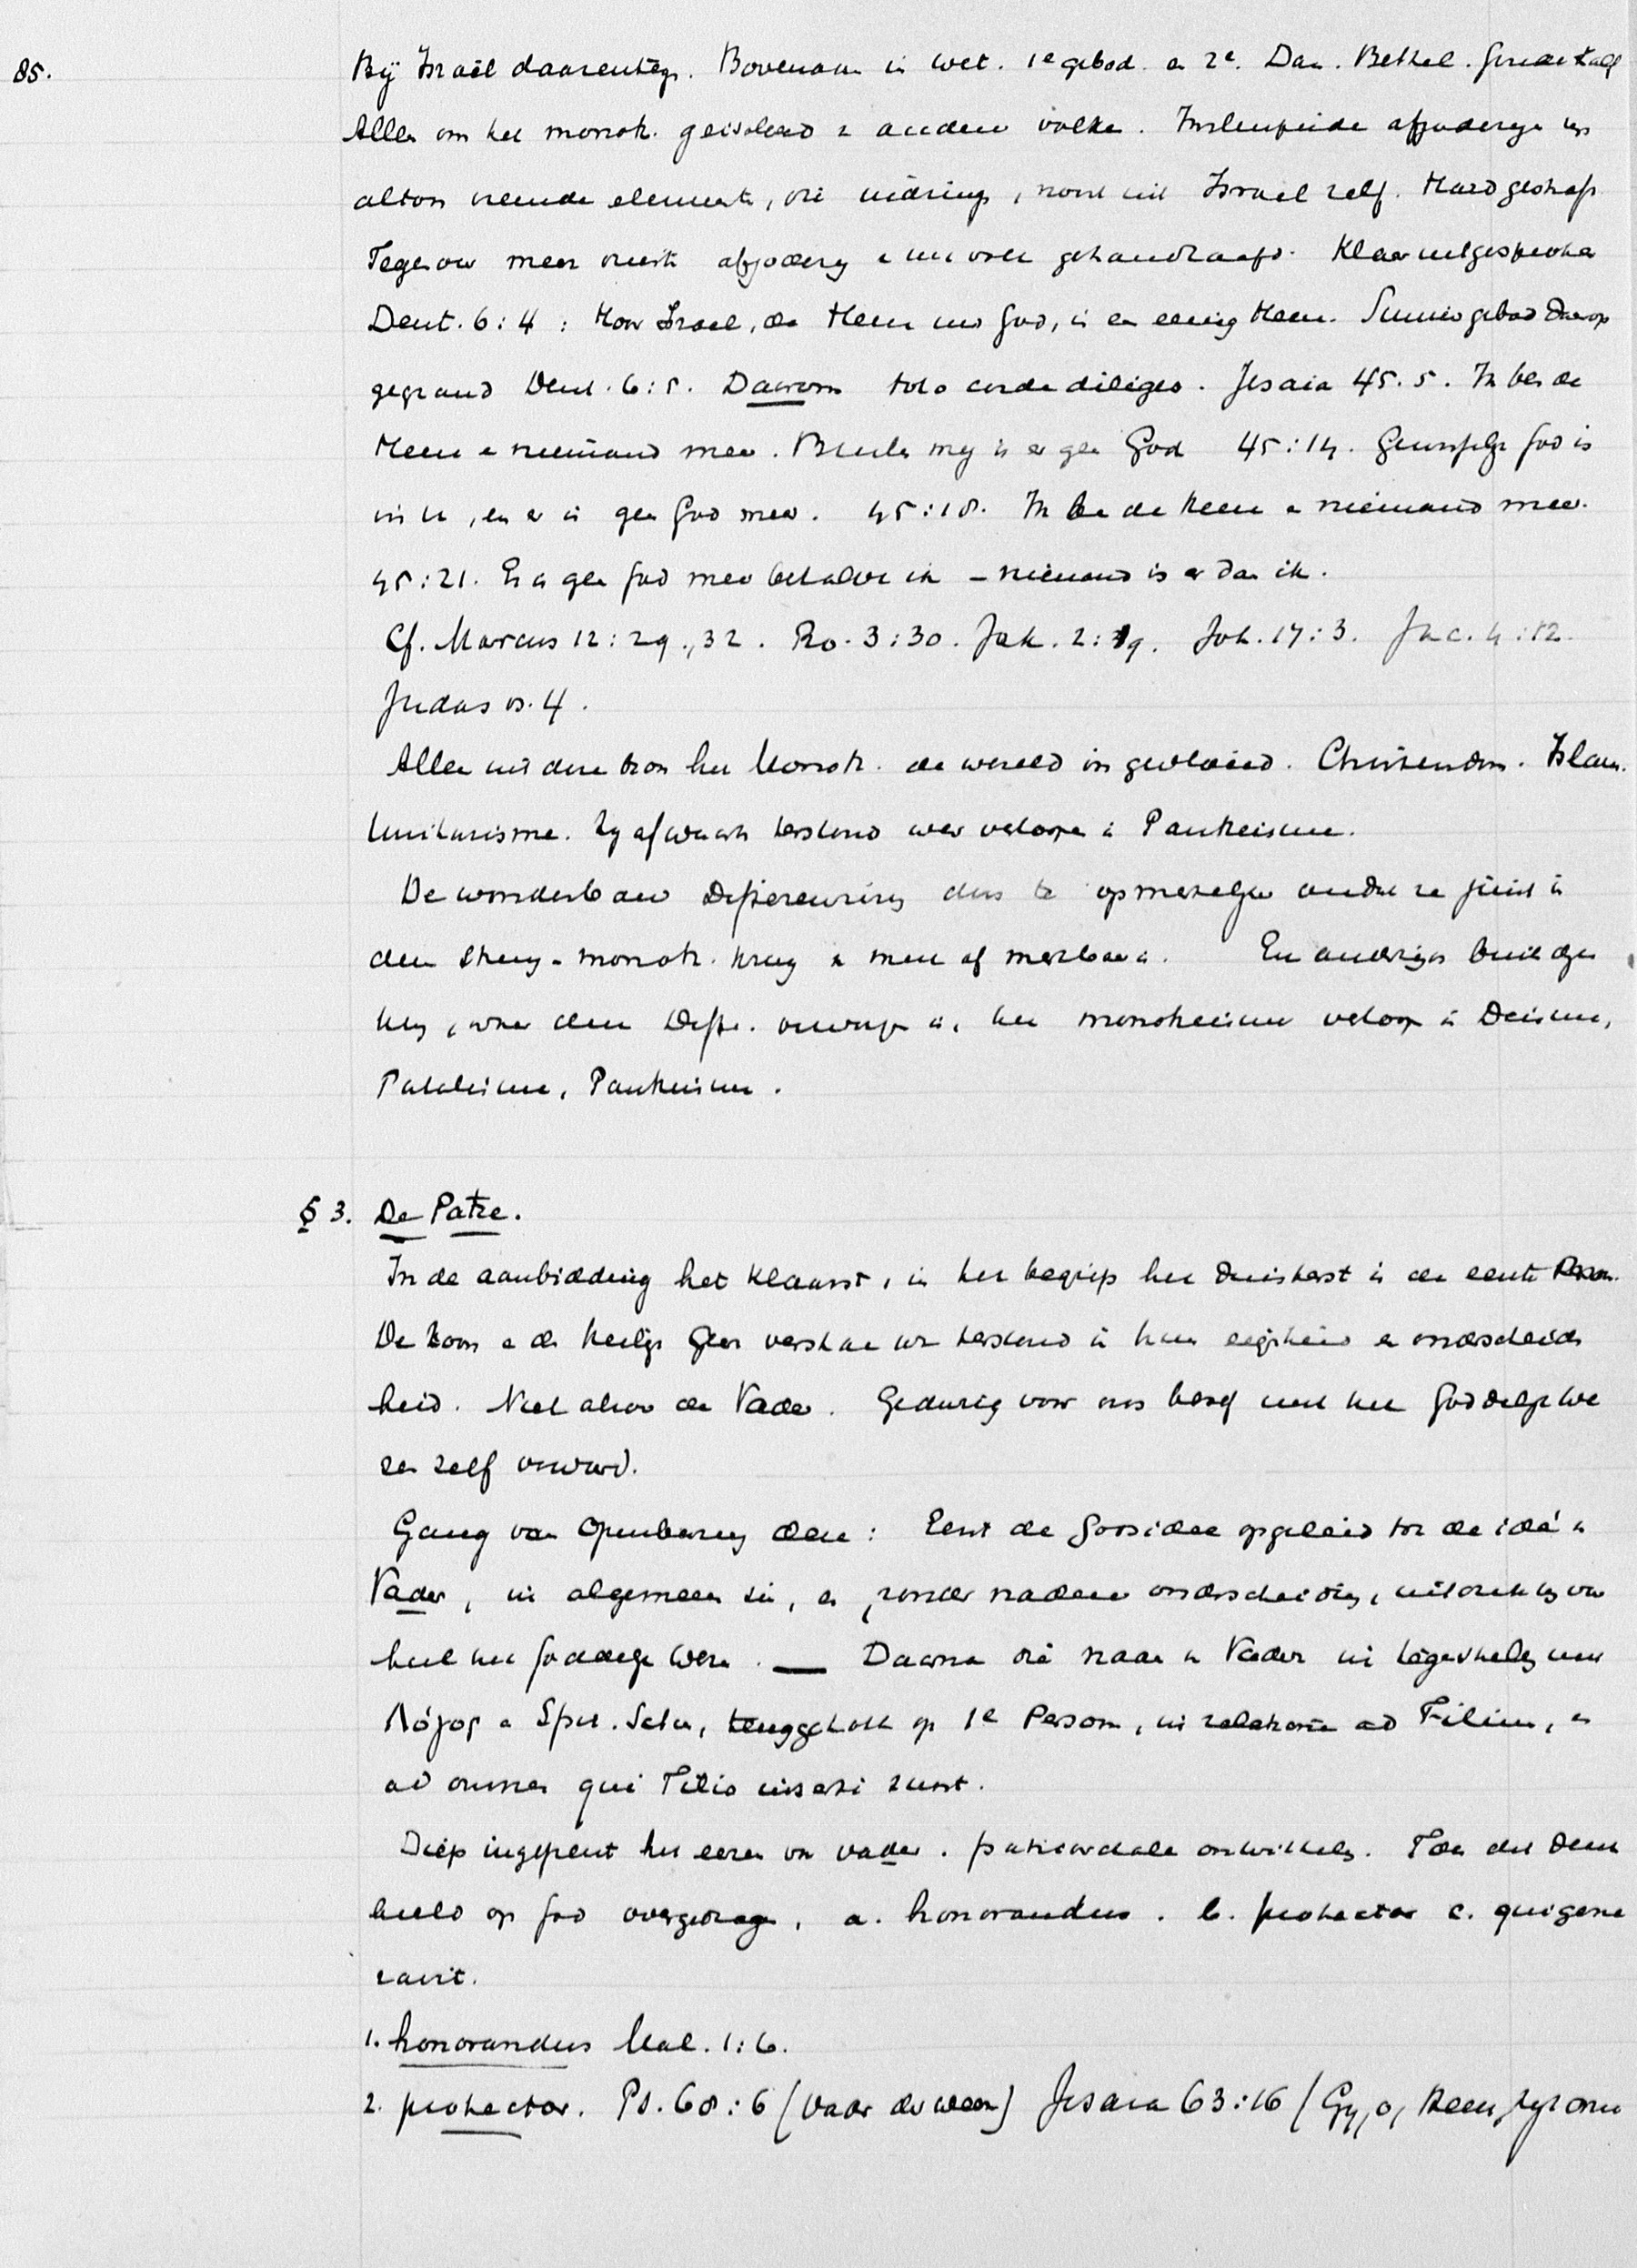 85.
Bij Israël daarenteg. Bovenaan in wet. 1e gebod en 2e. Dan. Bethel. Gouden kalf
Alles om het monoth. geisoleerd v andere volke. Insluipende afgoderye
altoos vreemde elementen, die indring, nooit uit Israel zelf. Hard gestraft
Tegenov meer afgodery gehandhaafd. Klaar uitgesproken
Deut. 6:4 : Hoor Israel, de Heere uw God, is een eenig Heere. Summier gebod daarop
gegrand Deut. 6:5. Daarom toto corde diliges. Jesaia 45.5. Ik ben de
Heere en niemand meer. Buiten my is er geen God 45:14. Gewisselijk God is
in u, en er is geen God meer. 45:18. Ik ben de Heere en niemand meer.
45:21. Er is geen God meer behalve ik – niemand is er dan ik.
Cf. Marcus 12:29., 32. Ro. 3:30. Jak. 2:19. Joh. 17:3. Jac. 4:12.
Judas vs. 4.
Alleen uit deze bron het Monoth. de wereld in gevloeid. Christendom. Islam.
Unitarisme. Zy afwaarts terstond weer verloopen in Pantheisme.
De wonderbare Depereuring dus te opmerkelyker omdat ze juist in
den streng-monoth. kring v men af merkbaar is. En anderzijds
waar deze verworpen is, het monotheisme verloopt in Deisme,
Fatalisme, Pantheisme.
§ 3. De Patre.
In de aanbidding het klaarst, in het begrip het duisterst is de eerste Persoon.
De Zoon en de Heilige Geest verstaan we terstond in hun eigenheid en onderscheiden
heid. Niet alzoo de Vader. Gedurig voor ons besef met het Goddelijk We
zen zelf verward.
Gang van Openbaring deze: Eerst de Godsidee opgeleid tot de idée v
Vader, in algemeen zin, en zonder nadere onderscheiding, uitdrukking van
heel het Goddelijk Wezen. — Daarna die naam v Vader in tegenstelling met
Λόγος en Spir. Sctus, teruggetrokk op 1e Persoon, in relatione ad Filium, en
ad omnes qui Filio inserti sunt.
Diep ingeprent het eeren van vader. patriarchale ontwikkeling. Toen dit denk
beeld op God overgedragen, a. honorandus. b. protector c. qui gene
ravit.
1. honorandus Mal. 1:6.
2. protector. Ps. 68:6 (Vader der weezen) Jesaia 63:16 (Gy, o, Heere, zyt onze